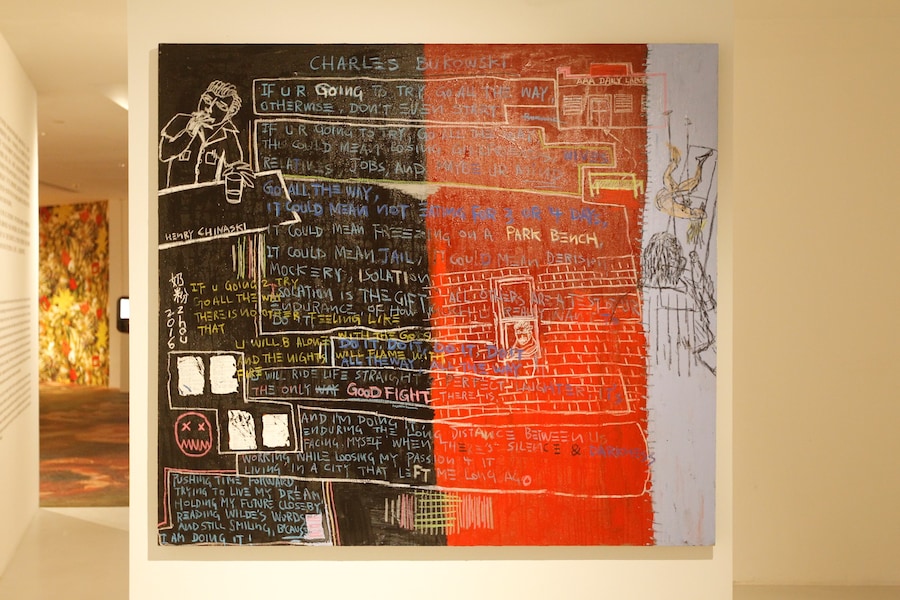 CHARLES BUKOWSKI
IF U R GOING TO TRY, GO ALL THE WAY
OTHERWISE, DON'T EVEN START
IF U R GOING TO TRY, GO ALL THE WAY
THIS COULD MEAN LOSING GIRLFRIENDS, WIVES
RELATIVES, JOBS, AND MAYBE UR MIND
GO ALL THE WAY,
IT COULD MEAN NOT EATING FOR 3 OR 4 DAYS,
IT COULD MEAN FREEZING ON A PARK BENCH,
IT COULD MEAN JAIL, IT COULD MEAN DERISION
MOCKERY, ISOLATION
ISOLATION IS THE GIFT, ALL OTHERS ARE A TEST OF
ENDURANCE OF HOW
DO IT
FEELING LIKE
HENRY CHINASKI
奶粉 ZHOU
2016
IF U GOING 2 TRY
GO ALL THE WAY
THERE IS NO OTHER
THAT
U WILL B ALONE WITH THE GODS
AND THE NIGHTS WILL FLAME WITH
FIRE
DO IT, DO IT, DO IT, DO IT
ALL THE WAY, ALL THE WAY
U WILL RIDE LIFE STRAIGHT PERFECT LAUGHTER, IT'S
THE ONLY WAY GOOD FIGHT THERE IS
AND I'M DOING IT
ENDURING THE LONG DISTANCE BETWEEN US
FACING MYSELF WHEN THERE'S SILENCE & DARKNESS
WORKING WHILE LOOSING MY PASSION 4 IT
LIVING IN A CITY THAT LEFT ME LONG AGO
PUSHING TIME FORWARD
TRYING TO LIVE MY DREAM
HOLDING MY FUTURE CLOSEBY
READING WILDE'S WORDS
AND STILL SMILING, BECAUSE
I AM DOING IT!